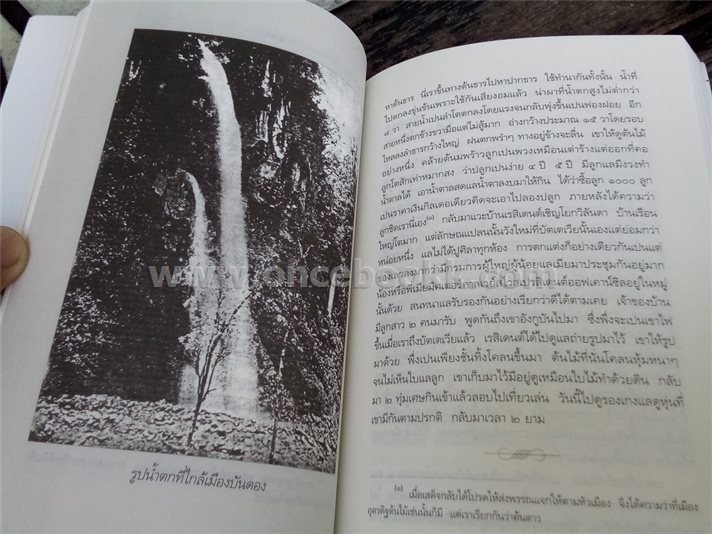 รูปน้ำตกที่ใกล้เมืองบันดอง
หาต้นธาร นี่เราขึ้นทางต้นธารไปหาปากธาร ใช้ทำนากันทั้งนั้น น้ำที่
ไปตกลงขุ่นข้นเพราะใช้กันเสียงอมแล้ว น่าผาที่น้ำตกสูงไม่ต่ำกว่า
๘ วา สายน้ำเป็นลำโตตกลงโดยแรงจนกลับพุ่งขึ้นเป็นฟองฝอย อีก
สายหนึ่งตกข้างขวามือแต่ไม่สู้มาก อ่างกว้างประมาณ ๑๕ วาโดยรอบ
ไหลลงลำธารกว้างใหญ่ ฝนตกพรำๆ ทางอยู่ข้างจะลื่น เขาให้ดูต้นไม้
อย่างหนึ่ง คล้ายต้นมพร้าวลูกเป็นพวงเหมือนเต่าร้างแต่ออกที่คอ
ลูกโตสักเท่าหมากสง ว่าปลูกเป็นง่าย ๔ ปี ๕ ปี มีลูกแลมีงวงทำ
น้ำตาลได้ เอาน้ำตาลสดแลน้ำตาลงบมาให้กิน ได้ว่าซื้อลูก ๑๐๐๐ ลูก
เป็นราคาเงินกิลเดอเดียวคิดจะเอาไปลองปลูก ภายหลังได้ความว่า
ลูกชิดเรานี่เอง(๑) กลับมาแวะบ้านเรสิเดนต์เชิญโยกวิลันดา บ้านเรือน
ใหญ่โตมาก แต่ลักษณแปลนนั้นวังใหม่ที่บัตเตเวียนั้นเองแต่ย่อมกว่า
หน่อยหนึ่ง แลไม่ได้ปูศิลาทุกห้อง การตกแต่งก็อย่างเดียวกันเป็นแต่
นั้นด้วย สนทนาแลรับรองกันอย่างเรียกว่าดีได้ตามเคย เจ้าของบ้าน
มีลูกสาว ๒ คนมารับ พูดกันถึงเขาอังกูบันไปมา ซึ่งพึ่งจะเป็นเขาไฟ
ขึ้นเมื่อเราถึงบัตเตเวียแล้ว เรสิเดนต์ได้ไปดูแลถ่ายรูปมาไว้ เขาให้รูป
มาด้วย พึ่งเปนเพียงชั้นทิ้งโคลนขึ้นมา ต้นไม้ที่นั่นโคลนหุ้มหนาๆ
จนไม่เห็นใบแลลูก เขาเก็บมาไว้มีอยู่ดูเหมือนใบไม้ทำด้วยดิน กลับ
มา ๒ ทุ่มเศษกินเข้าแล้วลอบไปเที่ยวเล่น วันนี้ไปดูรองเกงแลดูหุ่นที่
เขามีกันตามปรกติ กลับมาเวลา ๒ ยาม
(๑) เมื่อเสด็จกลับได้โปรดให้ส่งพรรณแจกให้ตามหัวเมือง จึงได้ความว่าที่เมือง
อุตรดิฐต้นไม้เช่นนั้นก็มี แต่เราเรียกกันว่าต้นดาว